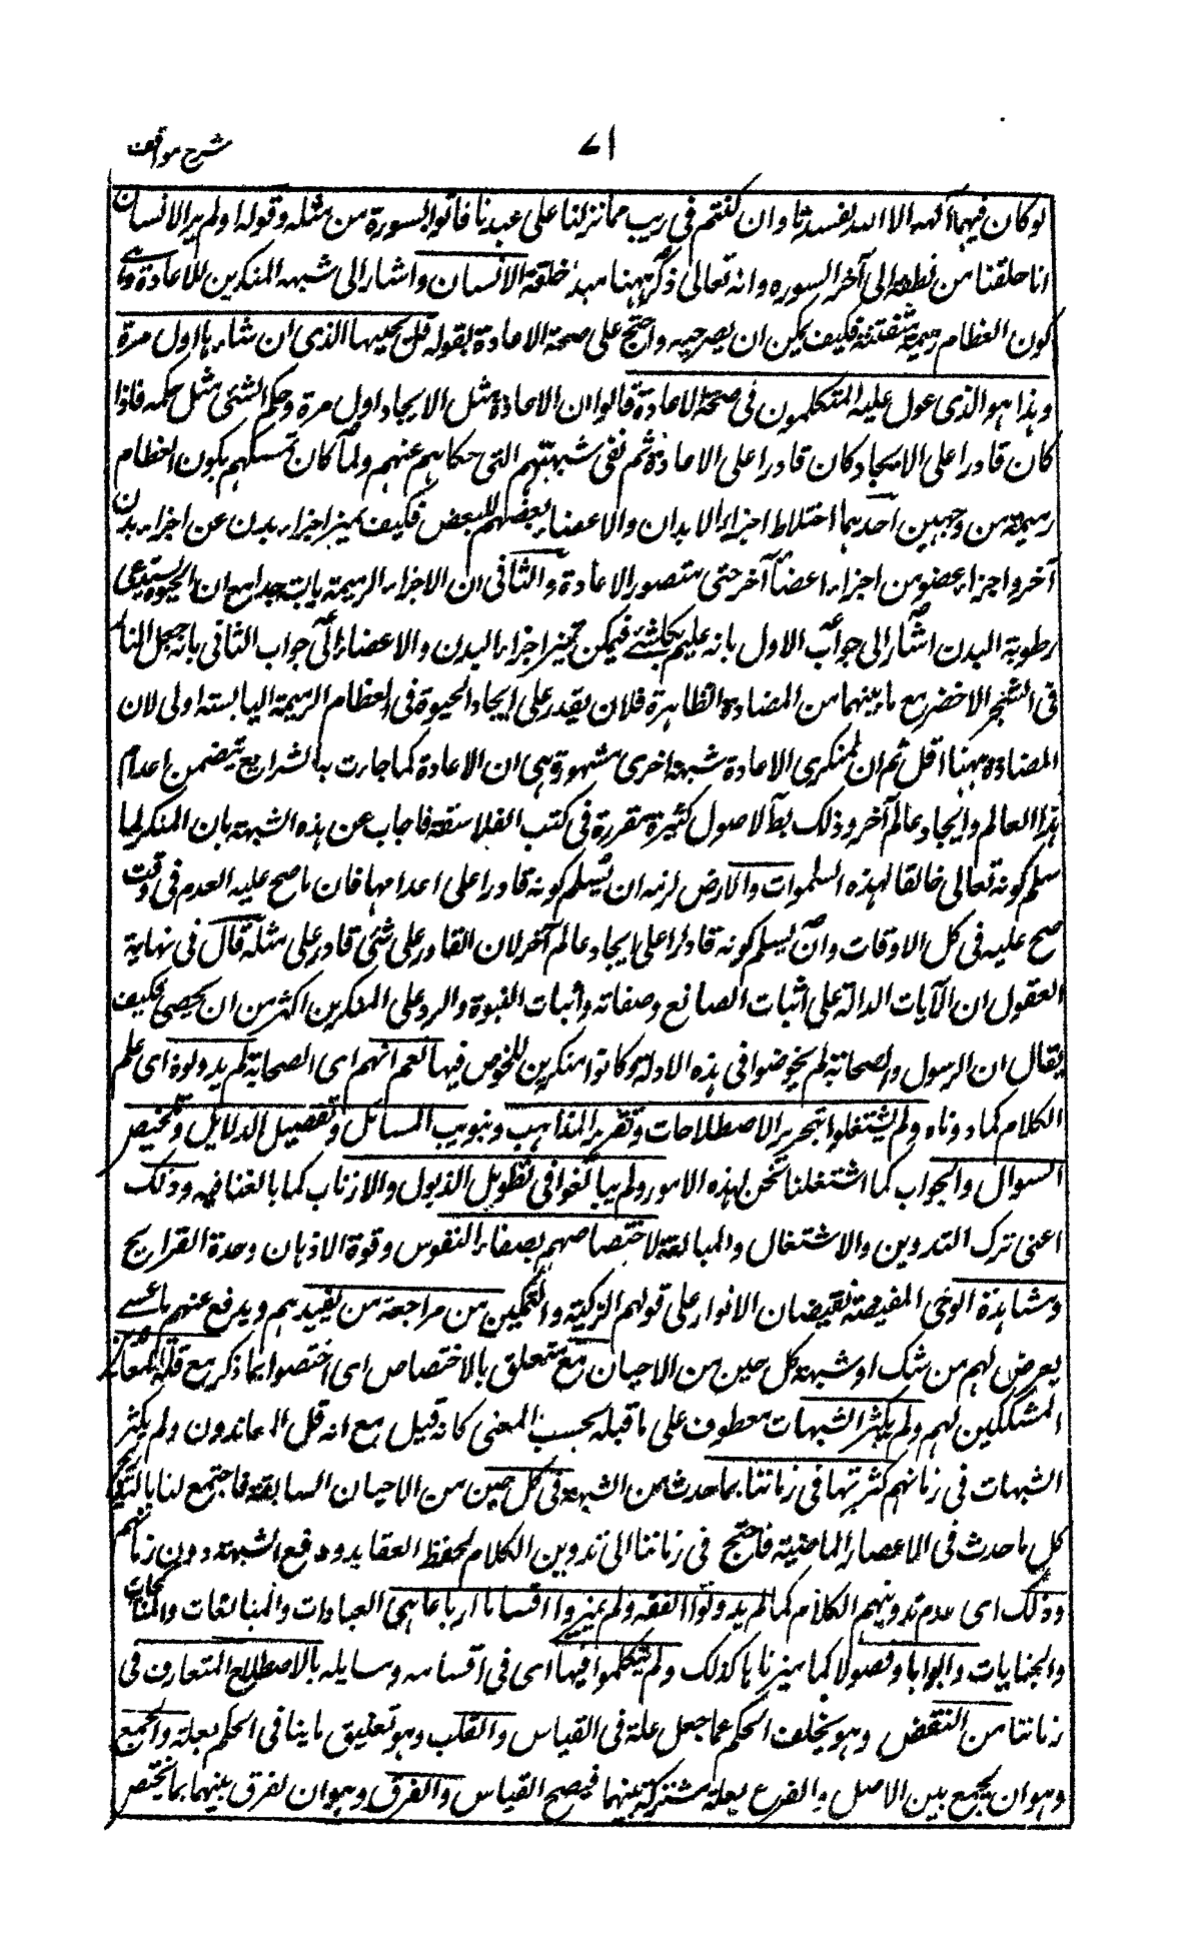 شرح مواقف
۷۱
لو كان فيهما آلهه الا الله لفسدتا وان كنتم فى ريب مما نزلنا على عبدنا فاتوا بسورة من مثله وقوله اولم ير الانسان
انا خلقنا من نطفه الى آخر السوره وانه تعالى ذكر ههنا مبدٔ خلقة الانسان واشار الى شبهه المنكرين للاعادة وهى
كون العظام رميمة متفتتة فكيف يمكن ان يصير حيه واحتج على صحة الاعادة بقوله قل يحييها الذى انشاءها اول مرة
وهذا هو الذى عول عليه المتكلمون فى صحة الاعادة قالوا ان الاعادة مثل الايجاد اول مرة وحكم الشئ مثل حكمه فاذا
كان قادرا على الايجاد كان قادرا على الاعادة ثم نفى شبهتهم التى حكاهم عنهم ولما كان تمسكهم بكون العظام
رميمة من وجهين احدهما اختلاط اجزاء الابدان والاعضا بعضهم للبعض فكيف يميز اجزاء بدن عن اجزاء بدن
آخر واجزاء عضو من اجزاء اعضأ آخر حتى متصور الاعادة والثانى ان الاجزاء الرميمة يابسة جدا مع ان الحيوة يستدعى
رطوبة البدن اشار الى جواب الاول بانه عليم بكل شئ فيمكن تميز اجزاء البدن والاعضاء والى جواب الثانى بانه جعل النار
فى الشجر الاخضر مع ما بينهما من المضادة الظاهرة فلان يقدر على ايجاد الحيوة فى العظام الرميمة اليابسته اولى لان
المضادة ههنا اقل ثم ان لمنكرى الاعادة شبهة اخرى مشهوة وهى ان الاعادة كما جاءت به الشرايع يتضمن اعدام
هذا العالم وايجاد عالم آخر وذلك بط لاصول كثيرة مقررة فى كتب الفلاسفة فاجاب عن هذه الشبهة بان المنكر لما
سلم كونه تعالى خالقا لهذه السلموات والارض لزمه ان يسلم كونه قادرا على اعدامها فان ما صح عليه العدم فى وقت
صح عليه فى كل الاوقات وان يسلم كونه قادرا على ايجاد عالم آخر لان القادر على شئ قادر على مثله قال فى نهاية
العقول ان الآيات الدالة على اثبات الصانع وصفاته واثبات النبوة والرد على المنكرين اكثر من ان يحصى فكيف
يقال ان الرسول والصحابة لم يخوضوا فى هذه الادلة وكانوا منكرين للخوض فيها نعم انهم اى الصحابة لم يدونوه اى علم
الكلام كما دوناه ولم يشتغلوا بتحرير الاصطلاحات وتقرير المذاهب وتبويب المسائل وتفصيل الدلايل وتلخيص
السوال والجواب كما اشتغلنا نحن بهذه الامور ولم يبالغوا فى تطويل الذيول والاذناب كما بالغنا فيه وذلك
اعنى ترك التدوين والاشتغال والمبالغة لاختصاصهم بصفاء النفوس وقوة الاذهان وحدة القرايح
ومشاهدة الوحى المفيضة لفيضان الانوار على قولهم الزكية والتمكين من مراجعة من يفيدهم ويدفع عنهم ما عسے
يعرض لهم من شك او شبهة كل حين من الاحيان مع متعلق بالاختصاص اى اختصوا بما ذكر مع قلة المعاندين
المشككين لهم ولم يكثر الشبهات معطوف على ما قبله بحسب المعنى كانه قيل مع انه قل المعاندون ولم يكثر
الشبهات فى زمانهم كثرتها فى زماننا بما حدث من الشبهة فى كل حين من الاحيان السابقة فاجتمع لنا بالتدريج
كل ما حدث فى الاعصار الماضية فاحتج فى زماننا الى تدوين الكلام لحفظ العقايد ودفع الشبهة دون زمانهم
وذلك اى عدم تدوينهم الكلام كما لم يدونوا الفقه ولم يميزوا اقساما ارباعا هى العبادات والمبالغات والمناكحات
والجنايات وابوابا وفصولا كما ميزناها كذلك ولم يتكلموا فيها اى فى اقسامه ومسايله بالاصطلاح المتعارف فى
زماننا من النقض وهو تخلف الحكم عما جعل علة فى القياس والقلب وهو تعليق ما ينافى الحكم بعلة والجمع
وهو ان يجمع بين الاصل والفرع بعلة مشتركة بينهما فيصح القياس والفرق وهو ان لفرق بينهما بما يختص